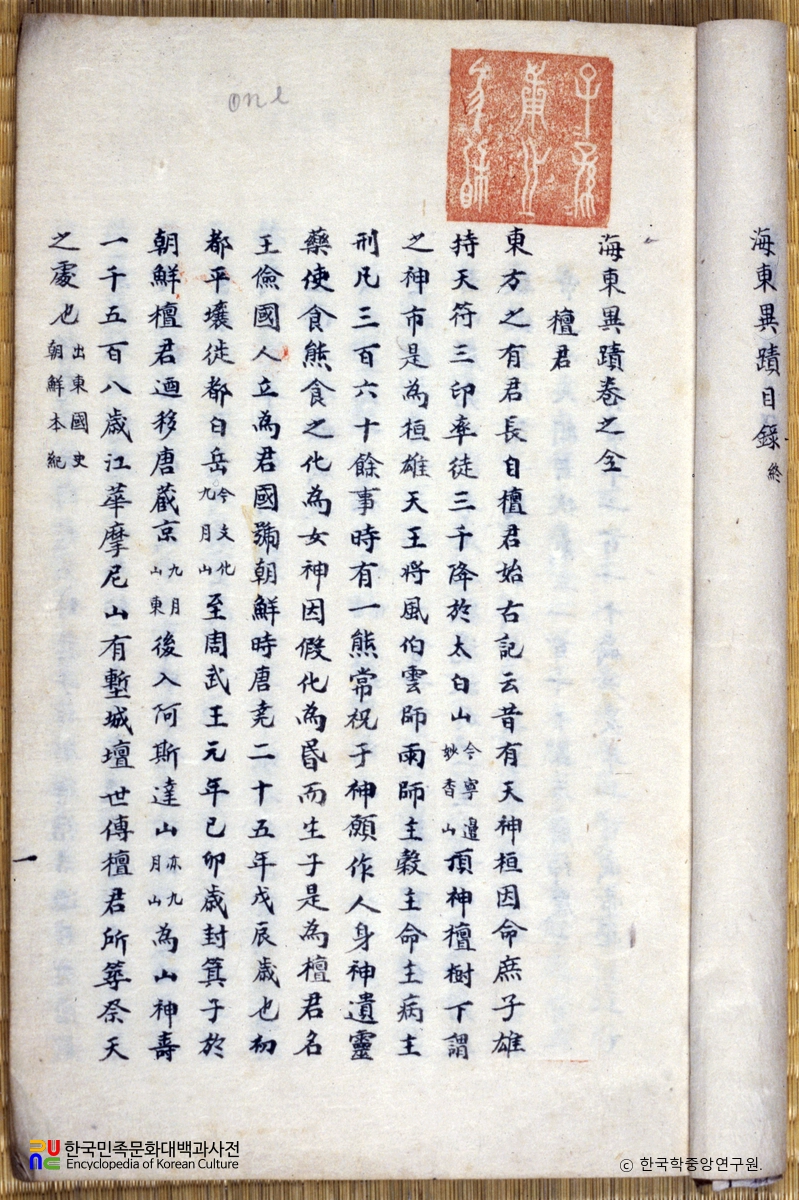 海東異蹟目錄終
海東異蹟卷之全
檀君
東方之有君長自檀君始古記云昔有天神桓因命庶子雄
持天符三印率徒三千降於太白山今寧邊妙香山頂神檀樹下謂
之神市是為桓雄天王將風伯雲師雨師主穀主命主病主
刑凡三百六十餘事時有一熊常祝于神願作人身神遺靈
藥使食熊食之化為女神因假化為昏而生子是為檀君名
王儉國人立為君國號朝鮮時唐堯二十五年戊辰歲也初
都平壤徙都白岳今文化九月山至周武王元年己卯歲封箕子於
朝鮮檀君迺移唐蔵京九月山東後入阿斯達山亦九月山為山神壽
一千五百八歲江華摩尼山有塹城壇世傳檀君所築祭天
之處也出東國史朝鮮本紀
一
one
한국민족문화대백과사전
Encyclopedia of Korean Culture
© 한국학중앙연구원.